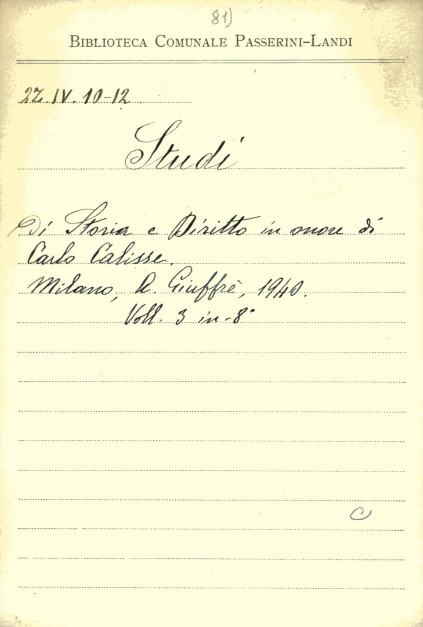 81)
BIBLIOTECA COMUNALE PASSERINI-LANDI
2Z.IV.10-12
Studi
Di Storia e Diritto in onore di
Carlo Calisse.
Milano, A. Giuffrè, 1940.
Voll. 3 in-8°
C